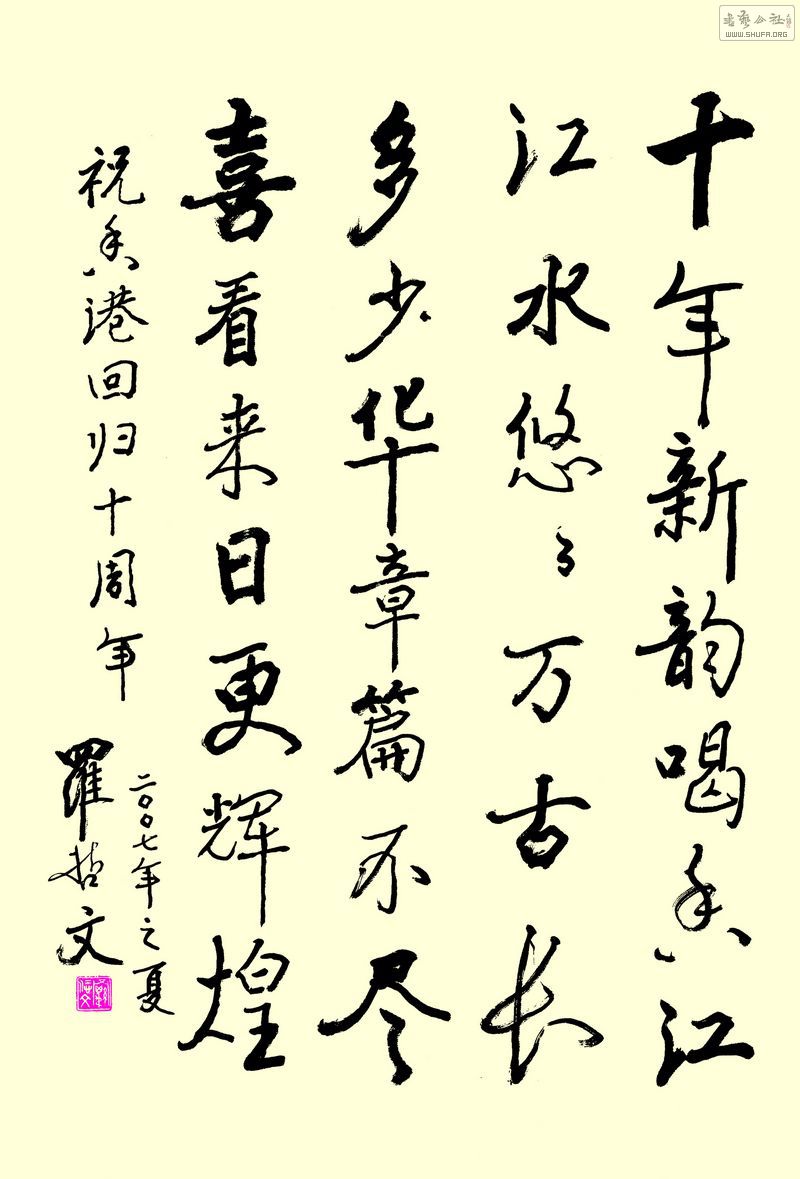 十年新韵喝香江
江水悠々万古长
多少华章篇不尽
喜看来日更辉煌
祝香港回归十周年
二〇〇七年之夏
罗哲文
书艺公社
WWW.SHUFA.ORG